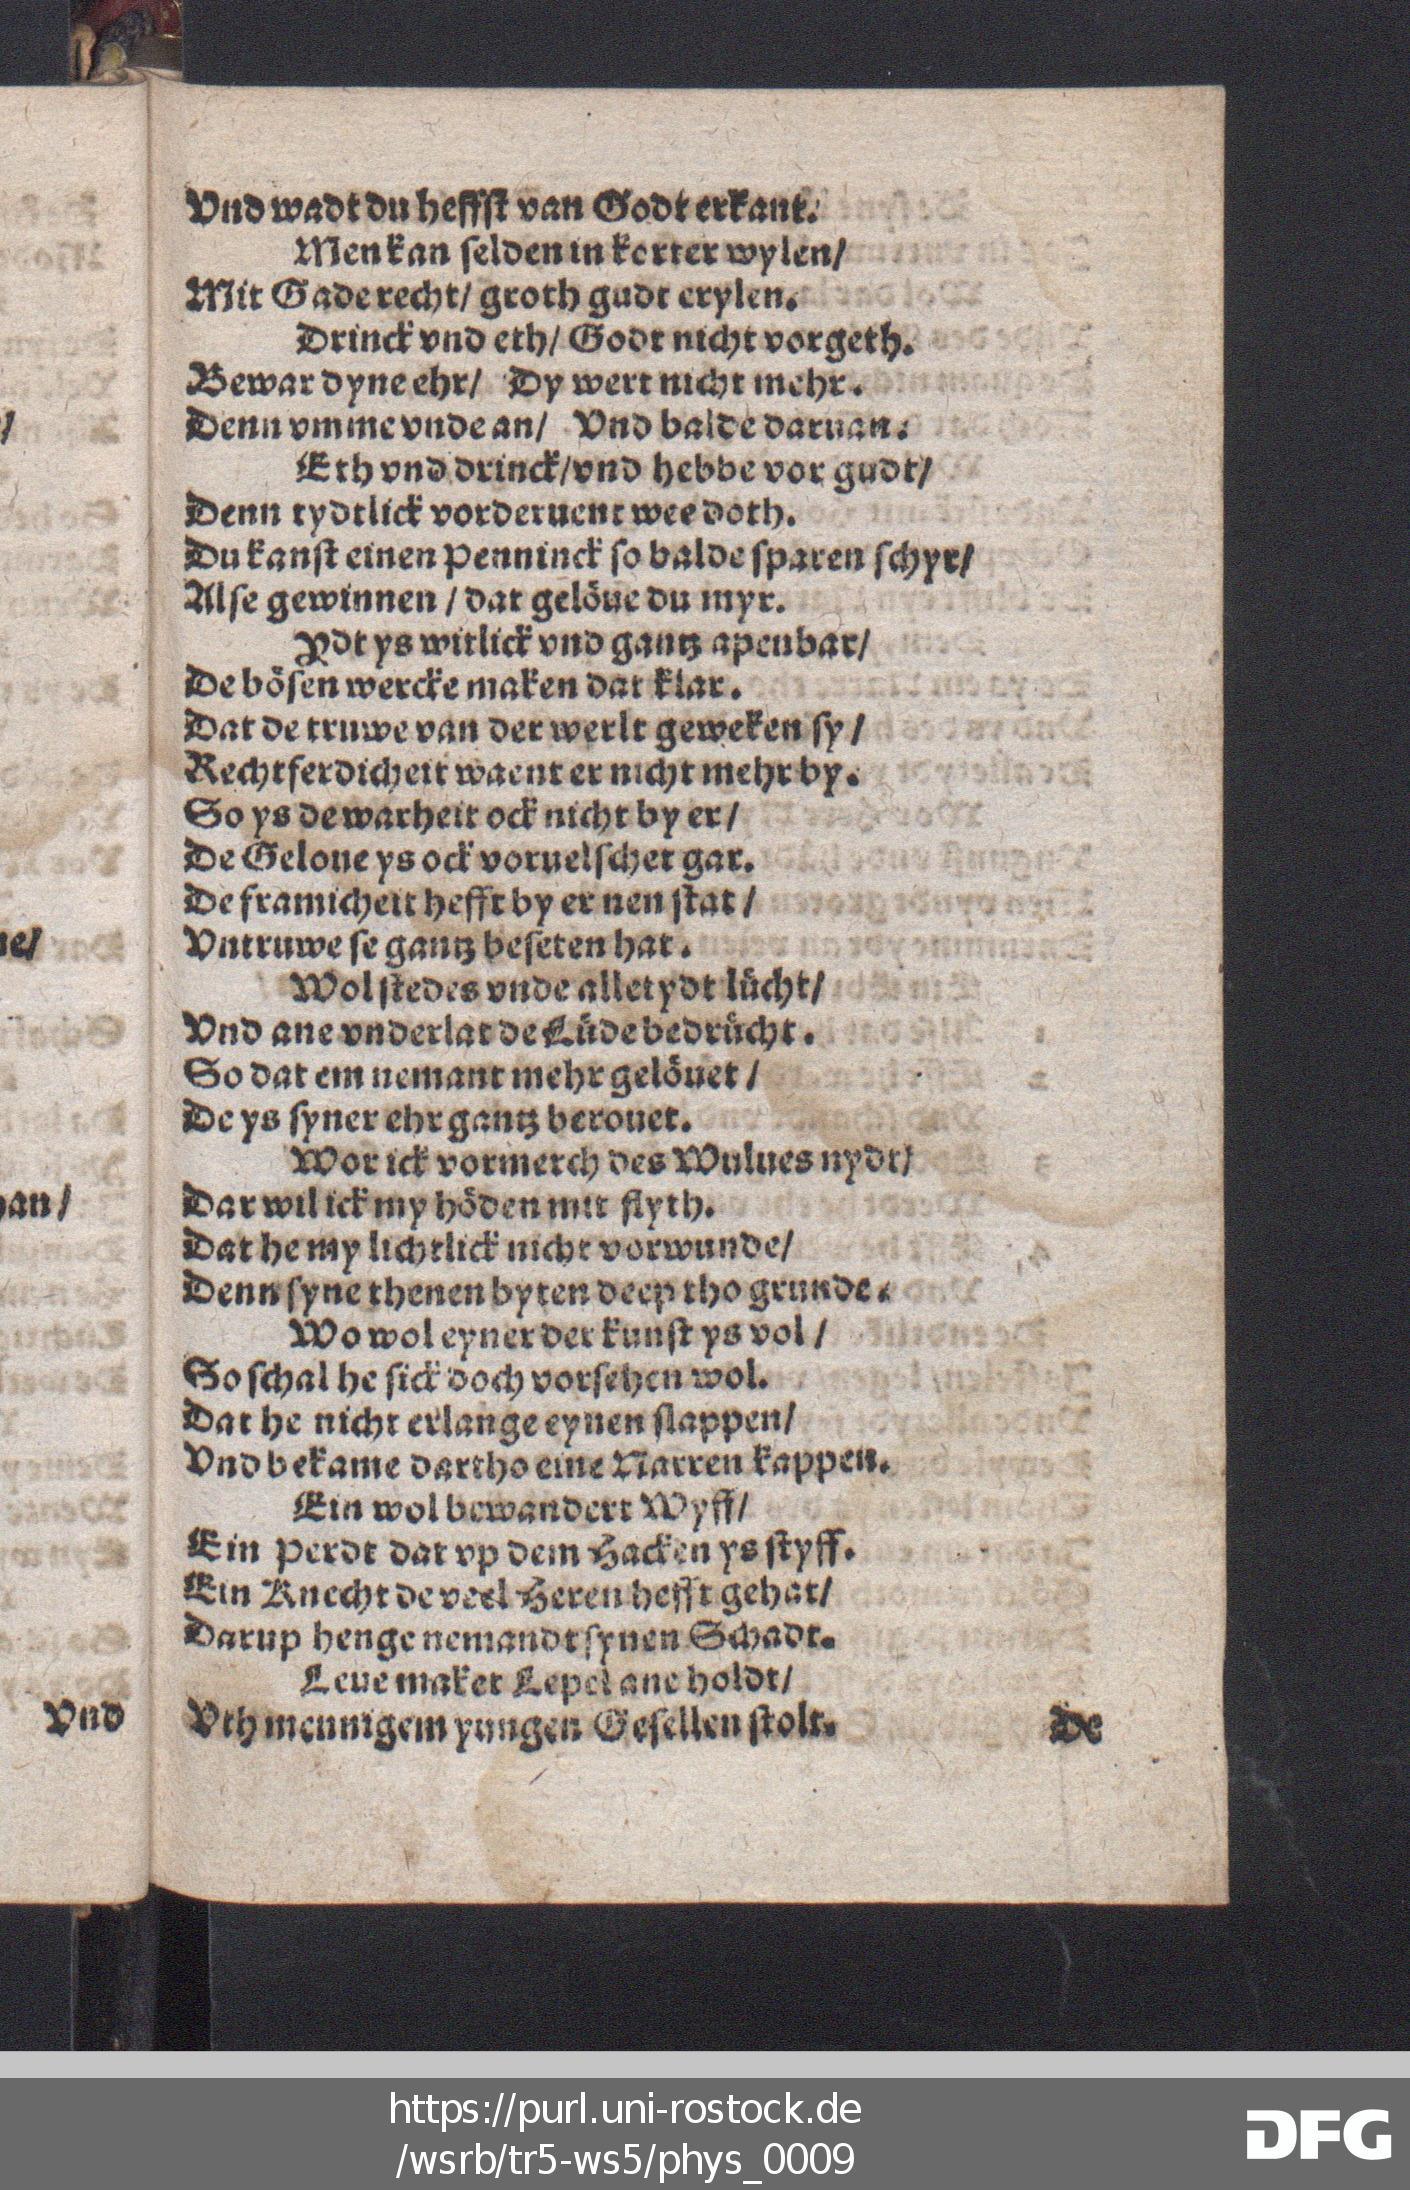 Vnd wadt du heffst van Godt erkant.
Men kan selden in korter wylen/
Mit Gade recht/ groth gudt erylen.
Drinck vnd eth/ Godt nicht vorgeth.
Bewar dyne ehr/ Dy wert nicht mehr.
Denn vmme vnde an/ Vnd balde daruan.
Eth vnd drinck/ vnd hebbe vor gudt/
Denn tydtlick vorderuent wee doth.
Du kanst einen Penninck so balde sparen schyr/
Alse gewinnen / dat gelöue du myr.
Ydt ys witlick vnd gantz apenbar/
De bösen wercke maken dat klar.
Dat de truwe van der werlt geweken sy/
Rechtferdicheit waent er nicht mehr by.
So ys de warheit ock nicht by er/
De Geloue ys ock voruelschet gar.
De framicheit hefft by er nen stat/
Vntruwe se gantz beseten hat.
Wol stedes vnde alletydt lücht/
Vnd ane vnderlat de Lüde bedrücht.
So dat em nemant mehr gelöuet/
De ys syner ehr gantz berouet.
Wor ick vormerch des Wulues nydt/
Dar wil ick my höden mit flyth.
Dat he my lichtlick nicht vorwunde/
Denn syne thenen byten deep tho grunde.
Wo wol eyner der kunst ys vol/
So schal he sick doch vorsehen wol.
Dat he nicht erlange eynen slappen/
Vnd bekame dartho eine Narren kappen.
Ein wol bewandert Wyff/
Ein Perdt dat vp dem Hacken ys styff.
Ein Knecht de veel Heren hefft gehat/
Darup henge nemandt synen Schadt.
Leue maket Lepel ane holdt/
Vth mennigem yungen Gesellen stolt.
De
/
ne/
an/
Vnd
https://purl.uni-rostock.de
/wsrb/tr5-ws5/phys_0009
DFG